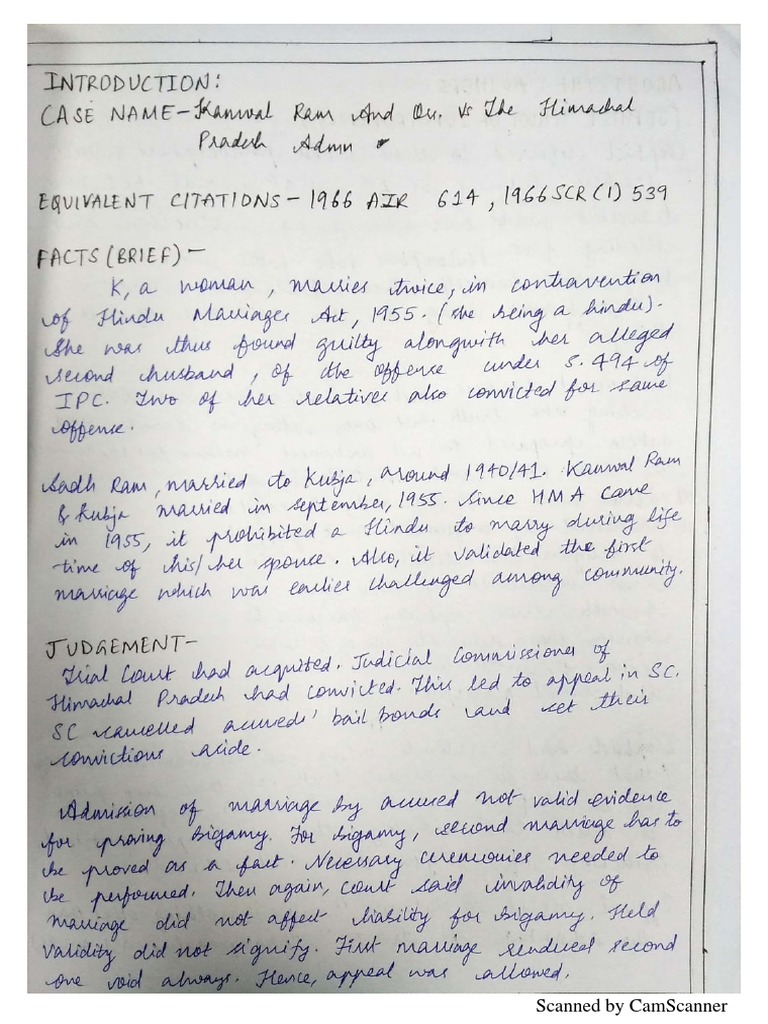 INTRODUCTION:
CASE NAME - Kanwal Ram And Ors. vs The Himachal
Pradesh Admn
EQUIVALENT CITATIONS - 1966 AIR 614, 1966 SCR (1) 539
FACTS (BRIEF) -
K, a woman, marries twice, in contravention
of Hindu Marriages Act, 1955. (she being a hindu).
She was thus found guilty alongwith her alleged
second husband, of the offense under S. 494 of
IPC. Two of her relatives also convicted for same
offense.
Sadh Ram, married to Kubja, around 1940/41. Kanwal Ram
& Kubja married in september, 1955. Since HMA came
in 1955, it prohibited a Hindu to marry during life
time of his/her spouse. Also, it validated the first
marriage which was earlier challenged among community.
JUDGEMENT -
Trial Court had acquited. Judicial Commissioner of
Himachal Pradesh had convicted. This led to appeal in SC.
SC cancelled accuseds' bail bonds and set their
convictions aside.
Admission of marriage by accused not valid evidence
for proving bigamy. For bigamy, second marriage has to
be proved as a fact. Necessary ceremonies needed to
be performed. Then again, court said invalidity of
marriage did not affect liability for bigamy. Held
validity did not signify. First marriage rendered second
one void always. Hence, appeal was allowed.
Scanned by CamScanner